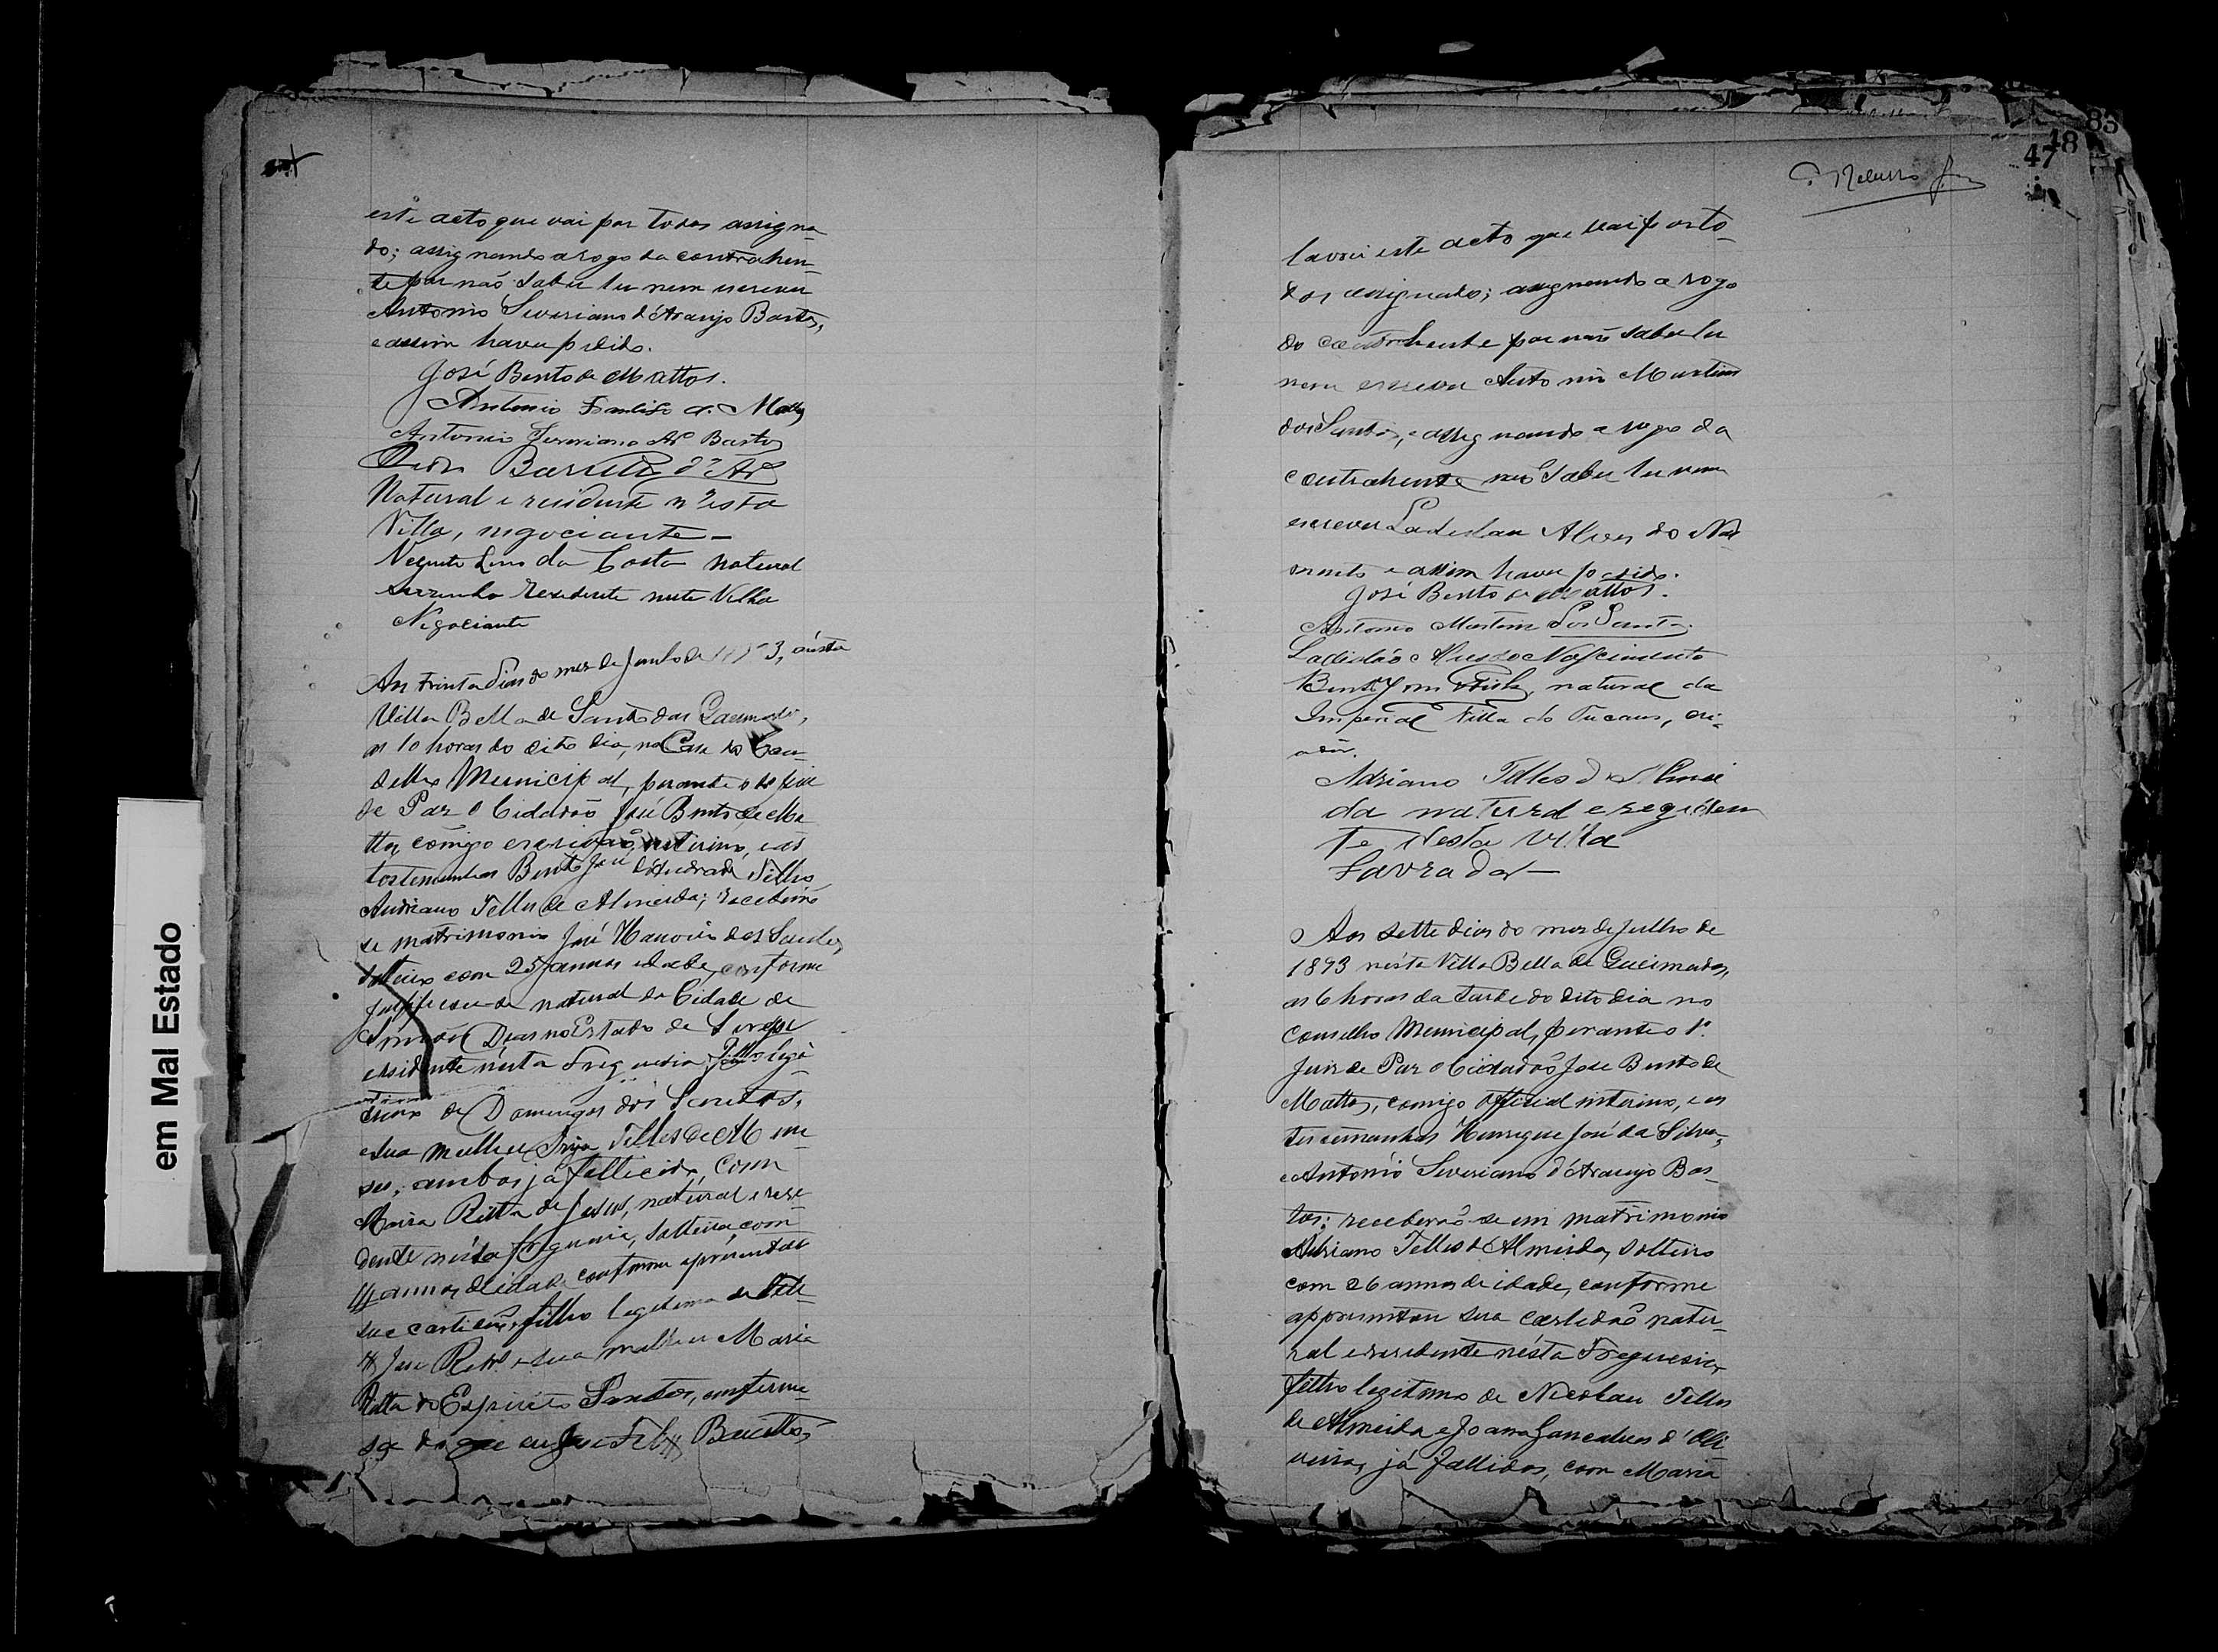 este acto que vai por todos assigna-
do; assignando a rogo da contrahen-
te por não saber ler nem escrever
Antonio Severiano d'Araujo Bastos,
e assim haver pedido.
José Bento de Mattos.
Antonio Francisco d. Mattos
Antonio Severiano Ar.º Bastos
Barretto d'Ar.º
Natural e residente n'esta
Villa, negociante—
Lino da Costa natural
Serrinha Residente nesta Villa
Negociante
Aos trinta dias do mes de Junho de 1893, nésta
Villa Bella de Santo das Queimadas,
as 10 horas do dito dia, na Casa do Con-
selho Municipal, perante o Juiz
de Paz o Cidadão José Bento de Ma-
ttos, comigo escrivão interino, e as
testemunhas Bento José d'Andrade Filho
Adriano Telles de Almeida; receberão
se matrimonio José Manoel dos Santos,
solteiro com 25 annos idade, conforme
justificou-se natural da Cidade de
Simão Dias no Estado de Sergipe
residente nésta Freguesia, Filho legi-
timo de Domingos dos Santos,
e sua mulher Telles de
ses, ambos já fallecido, com
Maria Ritta de Jesus, natural e resi-
dente nésta freguesia, solteira, com
annos de idade conforme apresentou
sua certidão, filha legitima de
José e sua mulher Maria
Ritta do Espirito Santos,
do que eu José Felix Barretto,
em Mal Estado
83
48
47
lavrei este acto que vai por to-
dos assignado; assignando a rogo
do contrahente por não saber ler
nem escrever Antonio Martins
dos Santos, e assignando a rogo da
contrahente não saber ler nem
escrever Ladislau Alves do Nas-
mento e assim haver pedido.
José Bento de Mattos.
Antonio Martins dos Santos.
Ladisláo Alves do Nascimento
Bento José natural da
Imperial Villa do Tucano, cri-
ador.
Adriano Telles d Almei
da natural e rezidem
te Nesta villa
Lavrador—
Aos sette dias do mes de Julho de
1893 nésta Villa Bella de Queimadas,
as 6 horas da tarde do dito dia no
Conselho Municipal, perante o 1º
Juiz de Paz o Cidadão José Bento de
Mattos, comigo Official interino, e as
testemunhas Henrique José da Silva,
e Antonio Severiano d'Araujo Bas-
tos; receberão-se em matrimonio
Adriano Telles d'Almeida, solteiro
com 26 annos de idade, conforme
appresentou sua certidão natu-
ral e residente nésta Freguesia,
filho legitimo de Nicolau Telles
de Almeida e Joana Goncalves d'Oli
veira, já fallidos, com Maria